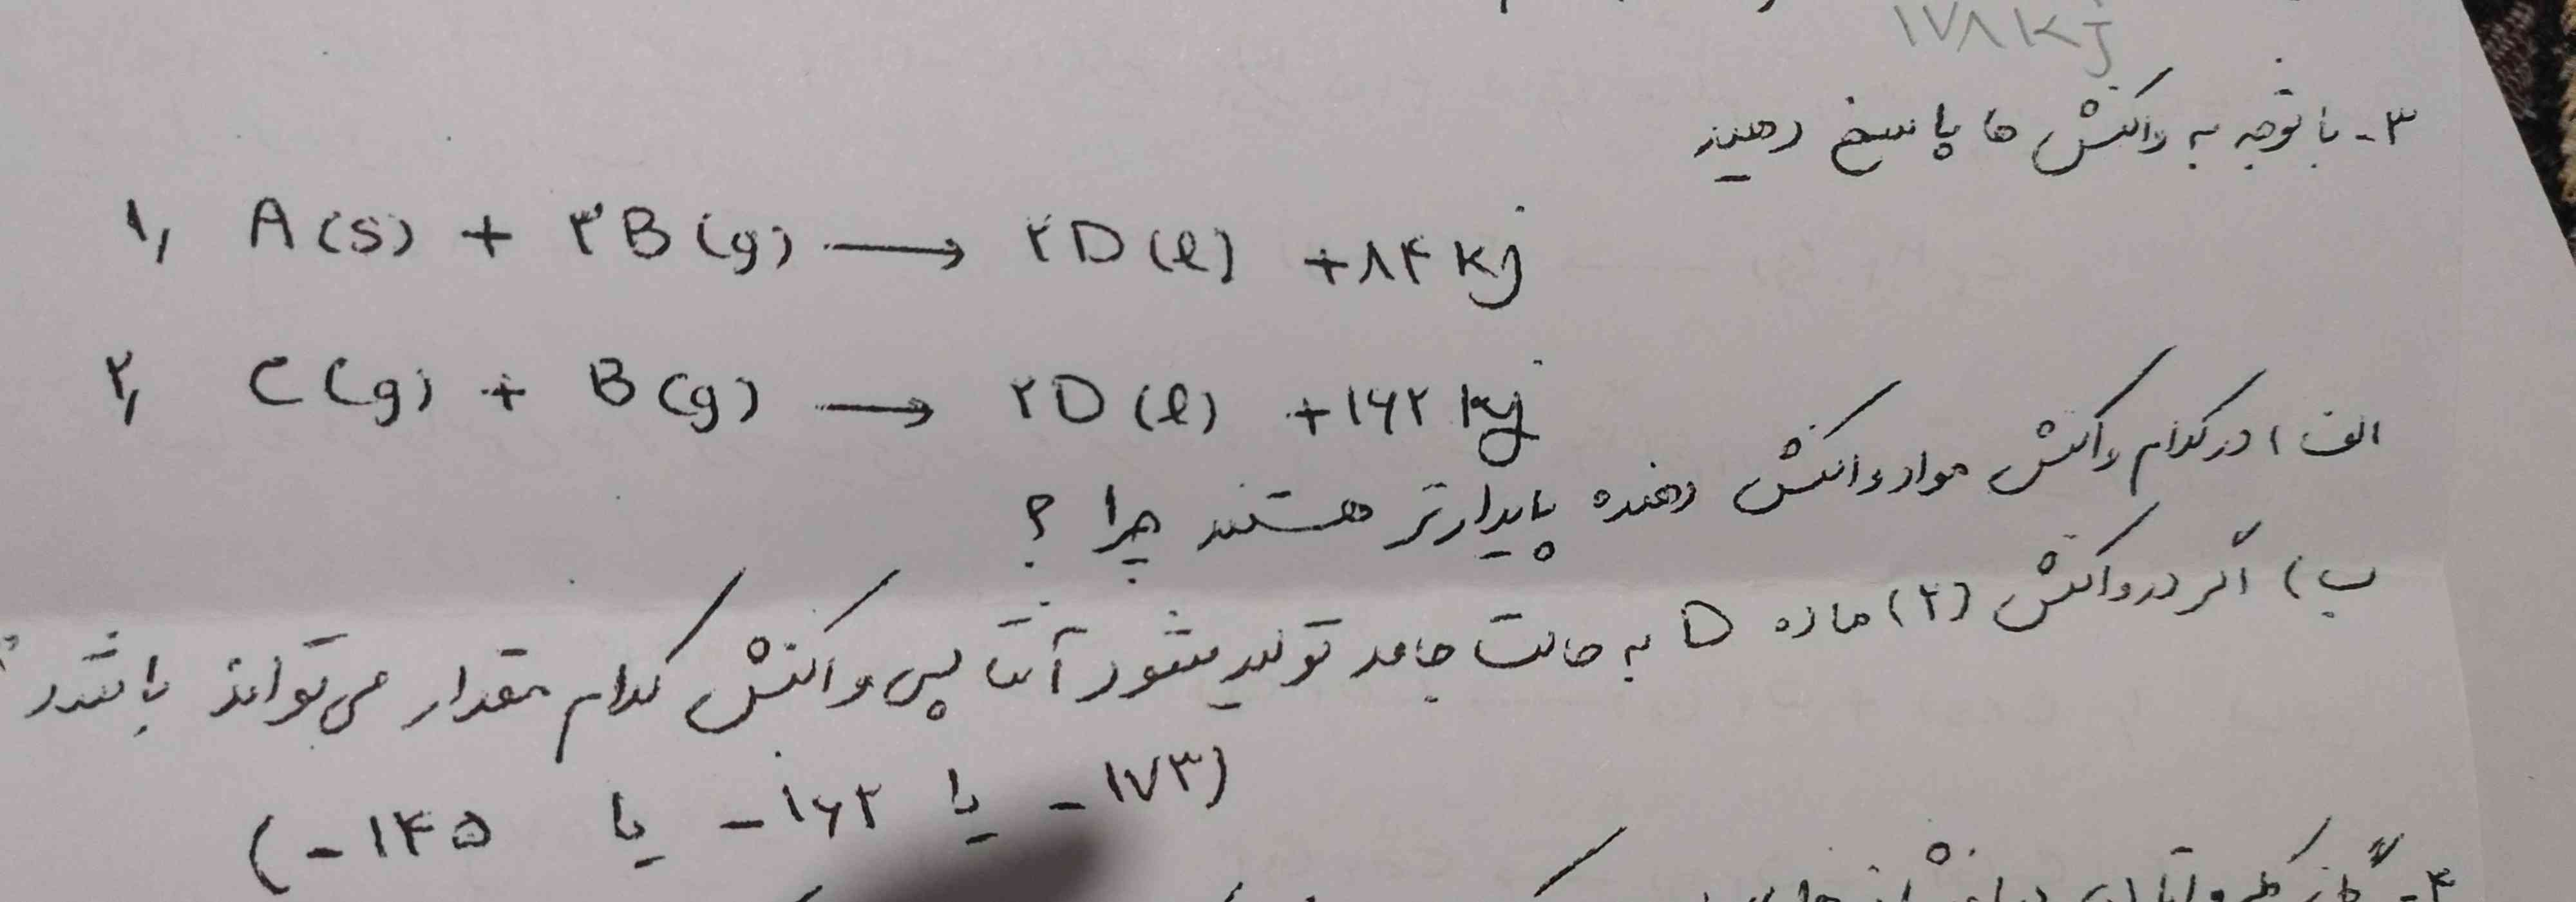 ۱۷۸ kj
۳- با توجه به واکنش ها پاسخ دهید
۱, A(s) + ۳B(g) → ۲D(l) +۸۴ kj
۲, C(g) + B(g) → ۲D(l) +۱۶۲ kj
الف) در کدام واکنش مواد واکنش دهنده پایدارتر هستند چرا ؟
ب) اگر در واکنش (۲) ماده D به حالت جامد تولید شود آنتالپی واکنش کدام مقدار می تواند باشد
(-۱۴۵ یا -۱۶۲ یا -۱۷۳)